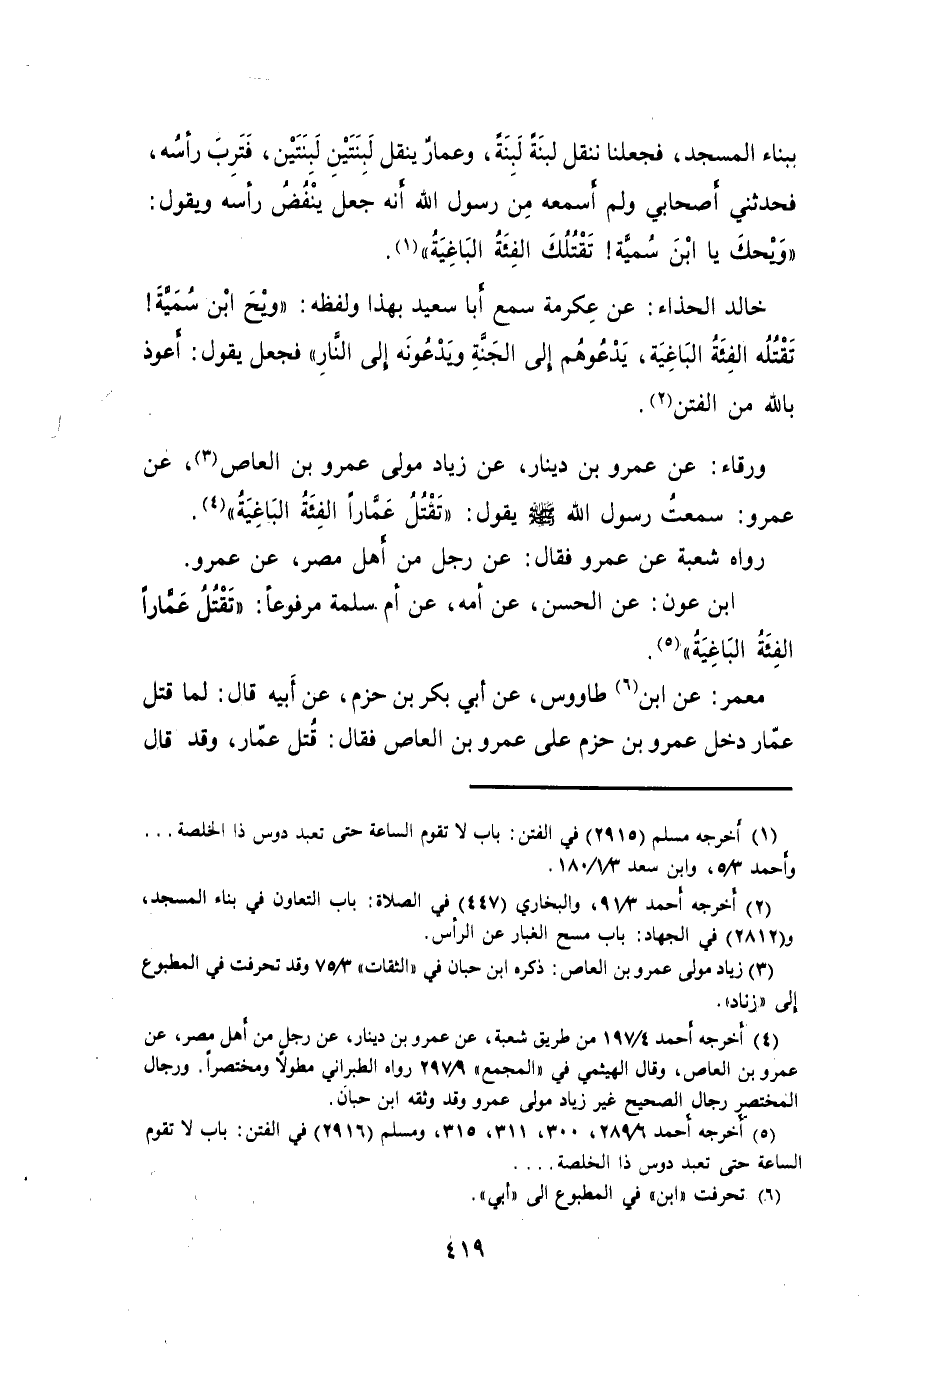 ببناء المسجد، فجعلنا ننقل لبنَةً لَبِنَةً، وعمارٌ ينقل لَبِنَتَيْنِ لَبِنَتَيْن، فَتَرِبَ رأسُه،
فحدثني أصحابي ولم أسمعه مِن رسول الله أنه جعل ينْفُضُ رأسه ويقول:
«وَيْحكَ يا ابْنَ سُميَّة! تَقْتُلُكَ الفِئَةُ البَاغِيَةُ»(١).
خالد الحذاء: عن عِكرمة سمع أبا سعيد بهذا ولفظه: «ويْحَ ابْن سُمَيَّةَ!
تَقْتُلُه الفِئَةُ البَاغِيَة، يَدْعُوهُم إلى الجَنَّةِ ويَدْعُونَه إلى النَّارِ» فجعل يقول: أعوذ
بالله من الفتن(٢).
ورقاء: عن عمرو بن دينار، عن زياد مولى عمرو بن العاص(٣)، عن
عمرو: سمعتُ رسول الله ﷺ يقول: «تَقْتُلُ عَمَّاراً الفِئَةُ البَاغِيَةُ»(٤).
رواه شعبة عن عمرو فقال: عن رجل من أهل مصر، عن عمرو.
ابن عون: عن الحسن، عن أمه، عن أم سلمة مرفوعاً: «تَقْتُلُ عَمَّاراً
الفِئَةُ البَاغِيَةُ»(٥).
معمر: عن ابن(٦) طاووس، عن أبي بكر بن حزم، عن أبيه قال: لما قتل
عمّار دخل عمرو بن حزم على عمرو بن العاص فقال: قُتل عمّار، وقد قال
(١) أخرجه مسلم (٢٩١٥) في الفتن: باب لا تقوم الساعة حتى تعبد دوس ذا الخلصة ...
وأحمد ٥/٣، وابن سعد ١٨٠/١/٣.
(٢) أخرجه أحمد ٩١/٣، والبخاري (٤٤٧) في الصلاة: باب التعاون في بناء المسجد،
و(٢٨١٢) في الجهاد: باب مسح الغبار عن الرأس.
(٣) زياد مولى عمرو بن العاص: ذكره ابن حبان في «الثقات» ٧٥/٣ وقد تحرفت في المطبوع
إلى «زناد».
(٤) أخرجه أحمد ١٩٧/٤ من طريق شعبة، عن عمرو بن دينار، عن رجل من أهل مصر، عن
عمرو بن العاص، وقال الهيثمي في «المجمع» ٢٩٧/٩ رواه الطبراني مطولاً ومختصراً. ورجال
المختصر رجال الصحيح غير زياد مولى عمرو وقد وثقه ابن حبان.
(٥) أخرجه أحمد ٢٨٩/٦، ٣٠٠، ٣١١، ٣١٥، ومسلم (٢٩١٦) في الفتن: باب لا تقوم
الساعة حتى تعبد دوس ذا الخلصة....
(٦) تحرفت «ابن» في المطبوع الى «أبي».
٤١٩